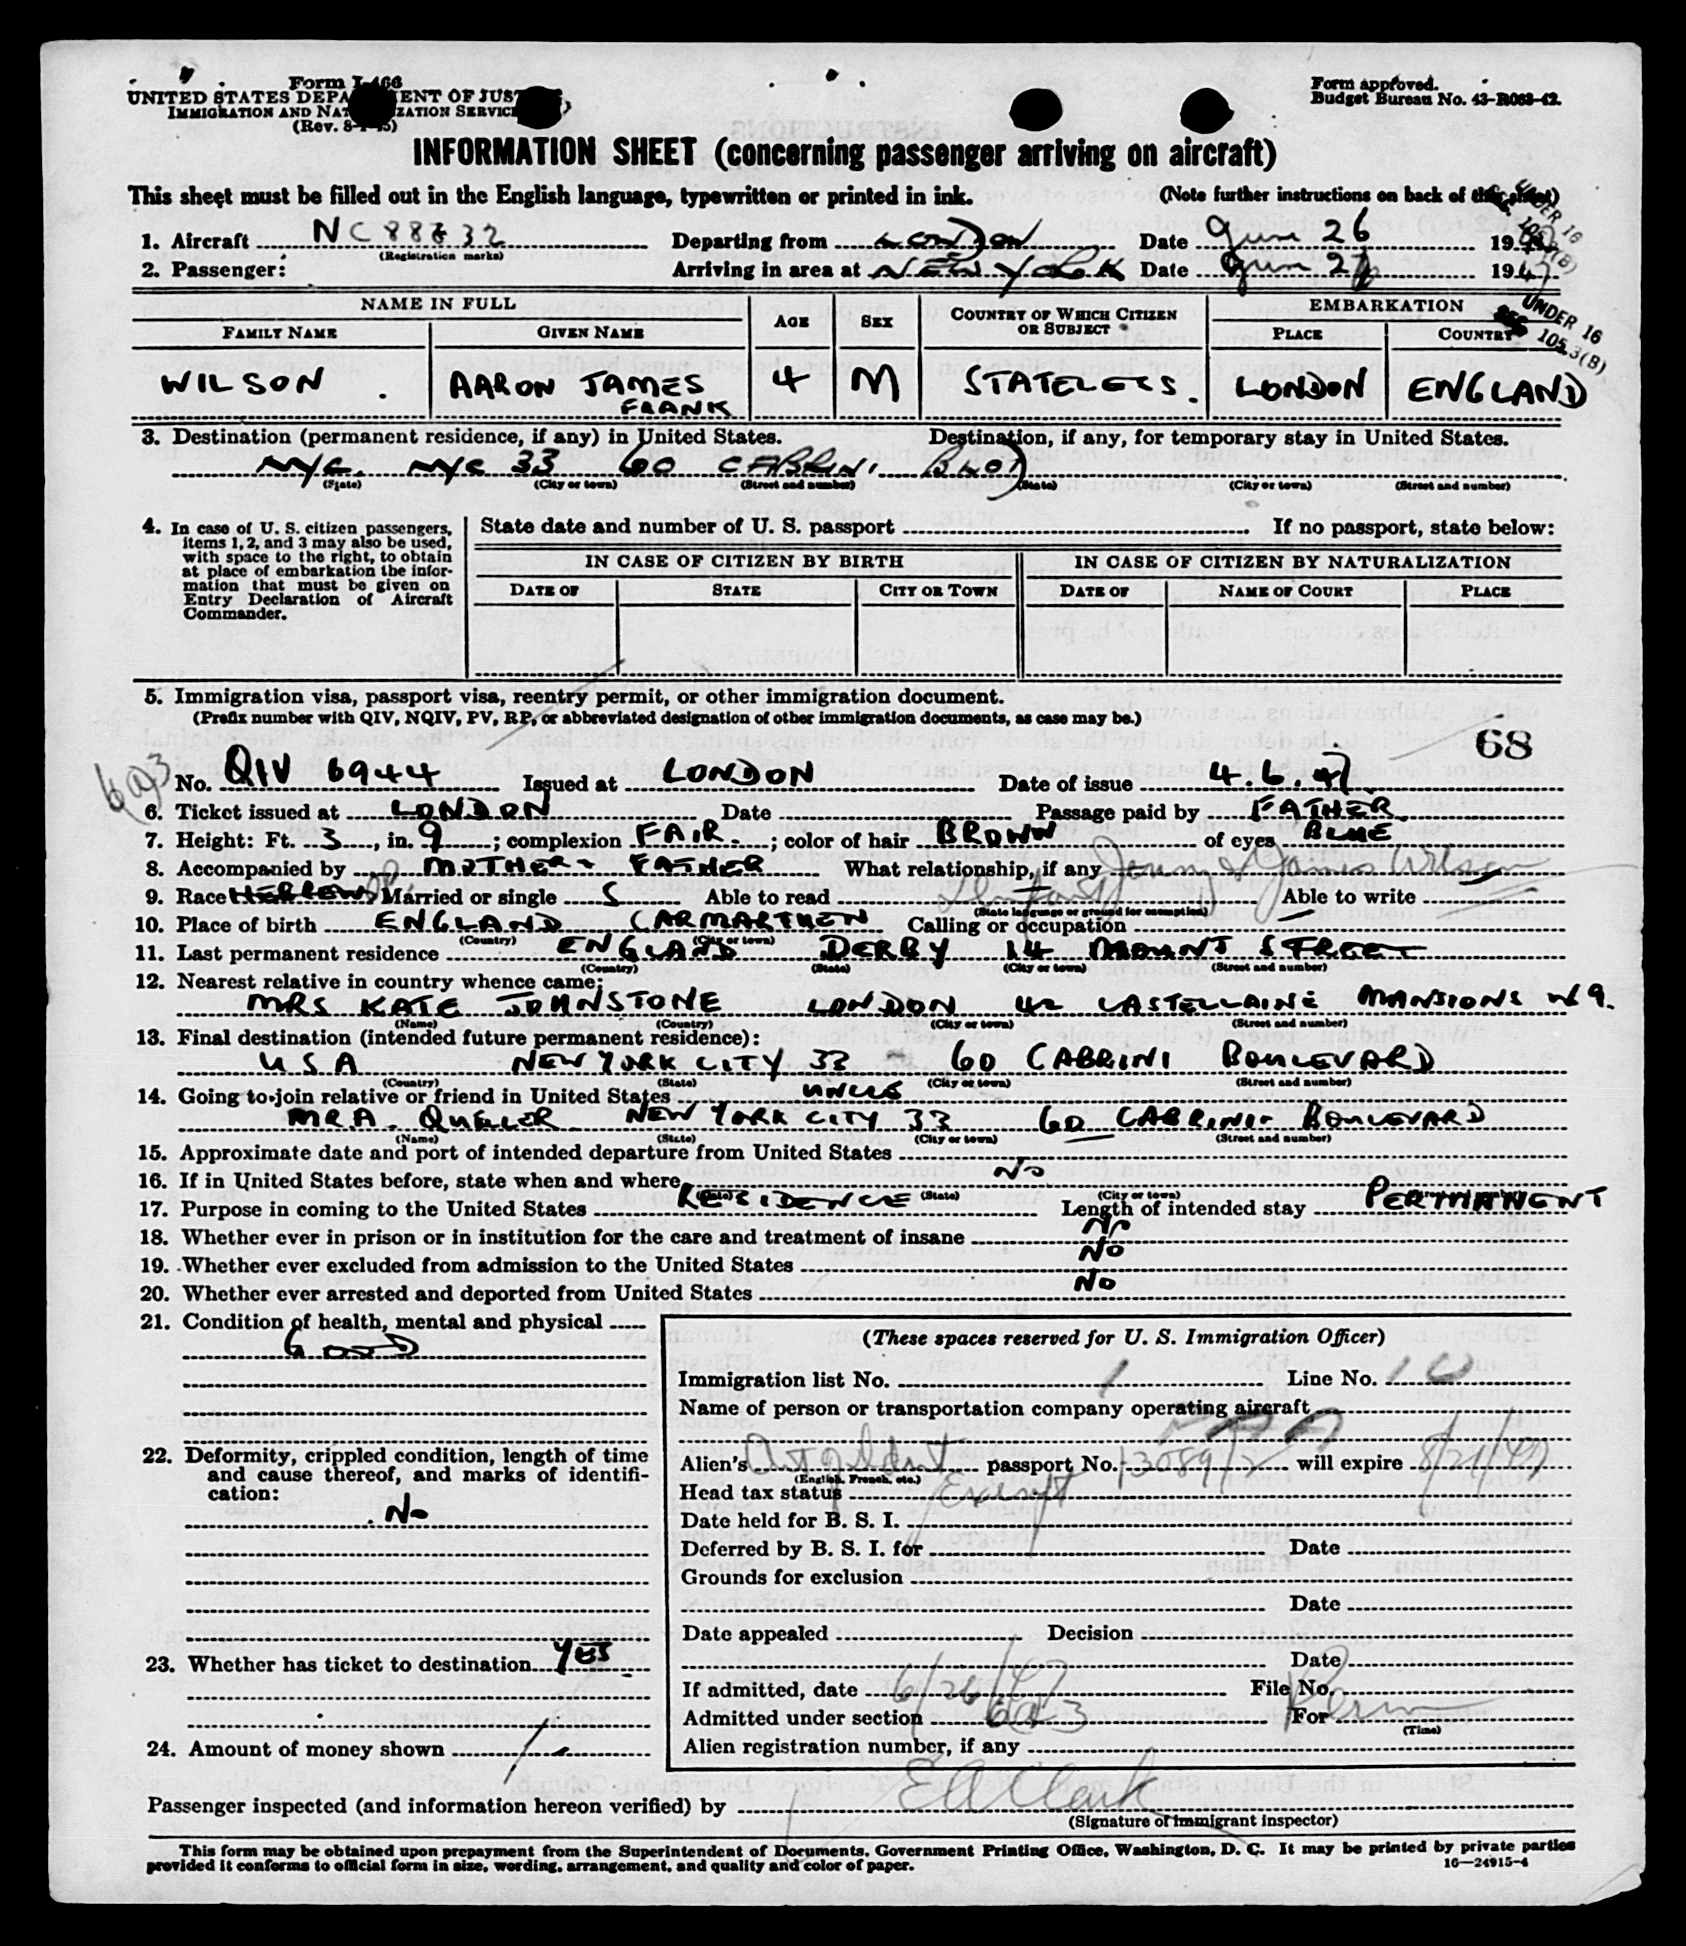 Form I-466
UNITED STATES DEPARTMENT OF JUSTICE,
IMMIGRATION AND NATURALIZATION SERVICE
(Rev. 8-1-45)
Form approved.
Budget Bureau No. 43-R063-42.
INFORMATION SHEET (concerning passenger arriving on aircraft)
This sheet must be filled out in the English language, typewritten or printed in ink. (Note further instructions on back of this sheet)
UNDER 16
1. Aircraft NC88832 Departing from LONDON Date June 26 1947
(Registration marks)
2. Passenger: Arriving in area at NEW YORK Date June 1947
UNDER 16
SEC 105.3(B)
NAME IN FULL AGE SEX COUNTRY OF WHICH CITIZEN OR SUBJECT EMBARKATION
FAMILY NAME GIVEN NAME PLACE COUNTRY
WILSON. AARON JAMES FRANK 4 M STATELESS. LONDON ENGLAND
3. Destination (permanent residence, if any) in United States. Destination, if any, for temporary stay in United States.
NYC. NYC 33 60 CABRINI BLVD
(State) (City or town) (Street and number) (State) (City or town) (Street and number)
4. In case of U. S. citizen passengers, items 1, 2, and 3 may also be used, with space to the right, to obtain at place of embarkation the information that must be given on Entry Declaration of Aircraft Commander.
State date and number of U. S. passport If no passport, state below:
IN CASE OF CITIZEN BY BIRTH IN CASE OF CITIZEN BY NATURALIZATION
DATE OF STATE CITY OR TOWN DATE OF NAME OF COURT PLACE
5. Immigration visa, passport visa, reentry permit, or other immigration document.
(Prefix number with QIV, NQIV, PV, RP, or abbreviated designation of other immigration documents, as case may be.)
68
6a3
No. QIV 6944 Issued at LONDON Date of issue 4.6.47
6. Ticket issued at LONDON Date Passage paid by FATHER
7. Height: Ft. 3, in. 9; complexion FAIR.; color of hair BROWN of eyes BLUE
8. Accompanied by MOTHER & FATHER What relationship, if any James Wilson
9. Race HEBREW Married or single S Able to read Able to write
(State language or ground for exemption)
10. Place of birth ENGLAND CARMARTHEN Calling or occupation
(Country) (City or town)
11. Last permanent residence ENGLAND DERBY 14 MOUNT STREET
(Country) (State) (City or town) (Street and number)
12. Nearest relative in country whence came:
MRS KATE JOHNSTONE LONDON 42 CASTELLAINE MANSIONS W9.
(Name) (Country) (City or town) (Street and number)
13. Final destination (intended future permanent residence):
USA NEW YORK CITY 33 60 CABRINI BOULEVARD
(Country) (State) (City or town) (Street and number)
14. Going to join relative or friend in United States UNCLE
MR A. QUELER NEW YORK CITY 33 60 CABRINI BOULEVARD
(Name) (State) (City or town) (Street and number)
15. Approximate date and port of intended departure from United States
16. If in United States before, state when and where NO
(Date) (State) (City or town)
17. Purpose in coming to the United States RESIDENCE Length of intended stay PERMANENT
18. Whether ever in prison or in institution for the care and treatment of insane NO
19. Whether ever excluded from admission to the United States NO
20. Whether ever arrested and deported from United States NO
21. Condition of health, mental and physical
GOOD
22. Deformity, crippled condition, length of time and cause thereof, and marks of identification:
No
23. Whether has ticket to destination YES
24. Amount of money shown
(These spaces reserved for U. S. Immigration Officer)
Immigration list No. 1 Line No. 10
Name of person or transportation company operating aircraft
Alien's passport No. 13089/2 will expire 8/21/47
(English, French, etc.)
Head tax status Exempt
Date held for B. S. I.
Deferred by B. S. I. for Date
Grounds for exclusion
Date
Date appealed Decision
Date
If admitted, date 6/26/47 File No.
Admitted under section 6a3 For Perm
(Time)
Alien registration number, if any
Passenger inspected (and information hereon verified) by E A Clark
(Signature of immigrant inspector)
This form may be obtained upon prepayment from the Superintendent of Documents, Government Printing Office, Washington, D. C. It may be printed by private parties
provided it conforms to official form in size, wording, arrangement, and quality and color of paper. 16—24915-4